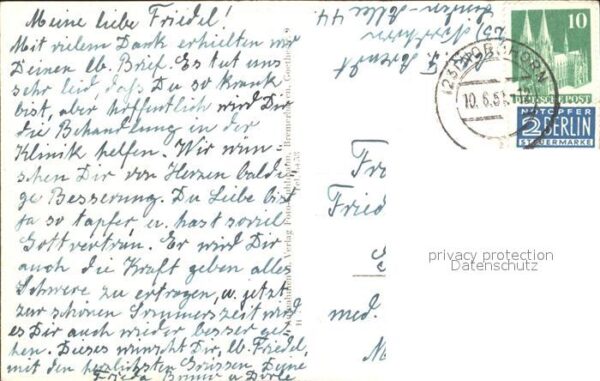 Meine liebe Friedel!
Mit vielem Dank erhielten wir
Deinen lb. Brief. Es tut uns
sehr leid, daß Du so krank
bist, aber hoffentlich wird Dir
die Behandlung in der
Klinik helfen. Wir wün-
schen Dir von Herzen baldi-
ge Besserung. Du Liebe bist
ja so tapfer u. hast soviel
Gottvertraun. Er wird Dir
auch die Kraft geben alles
Schwere zu ertragen, u. jetzt
zur schönen Sommerszeit wird
es Dir auch wieder besser ge-
hen. Dieses wünscht Dir, lb. Friedel,
mit den herzlichsten Grüssen Deine
Frieda
Verlag
Bremerhaven
44
10
DEUTSCHE POST
10.6.5
NOTOPFER
2 BERLIN
STEUERMARKE
Fr
Fried
med.
privacy protection
Datenschutz